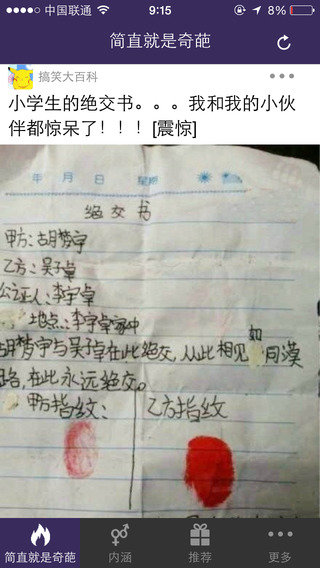 中国联通
9:15
89%
简直就是奇葩
搞笑大百科
小学生的绝交书。。。我和我的小伙
伴都惊呆了！！！[震惊]
年 月 日 星期
绝交书
甲方:胡梦宇
乙方:吴子卓
公证人:李宇卓
地点:李宇卓家中
胡梦宇与吴子卓在此绝交,从此相见如同漠
路,在此永远绝交。
甲方指纹:
乙方指纹
简直就是奇葩
内涵
推荐
更多